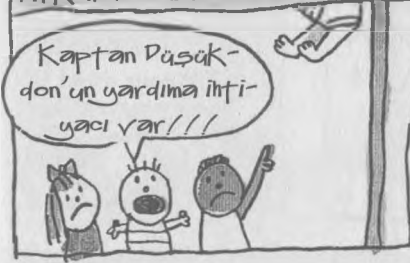 Kaptan Düşük-
don'un yardıma ihti-
yacı var!!!